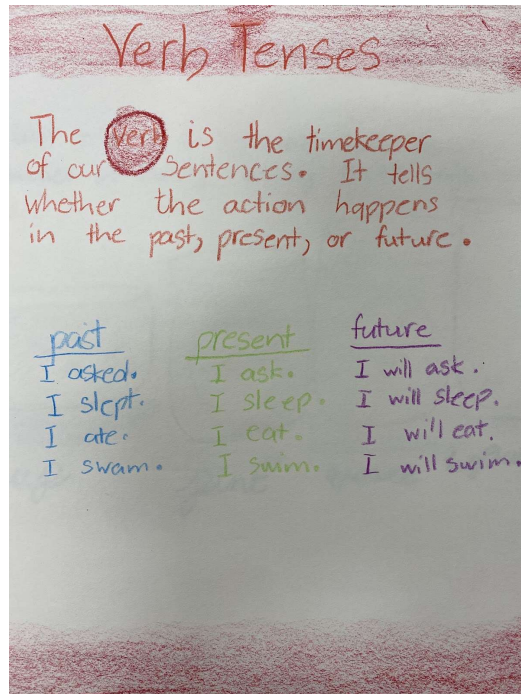 Verb Tenses
The verb is the timekeeper
of our sentences. It tells
whether the action happens
in the past, present, or future.
past present future
I asked. I ask. I will ask.
I slept. I sleep. I will sleep.
I ate. I eat. I will eat.
I swam. I swim. I will swim.